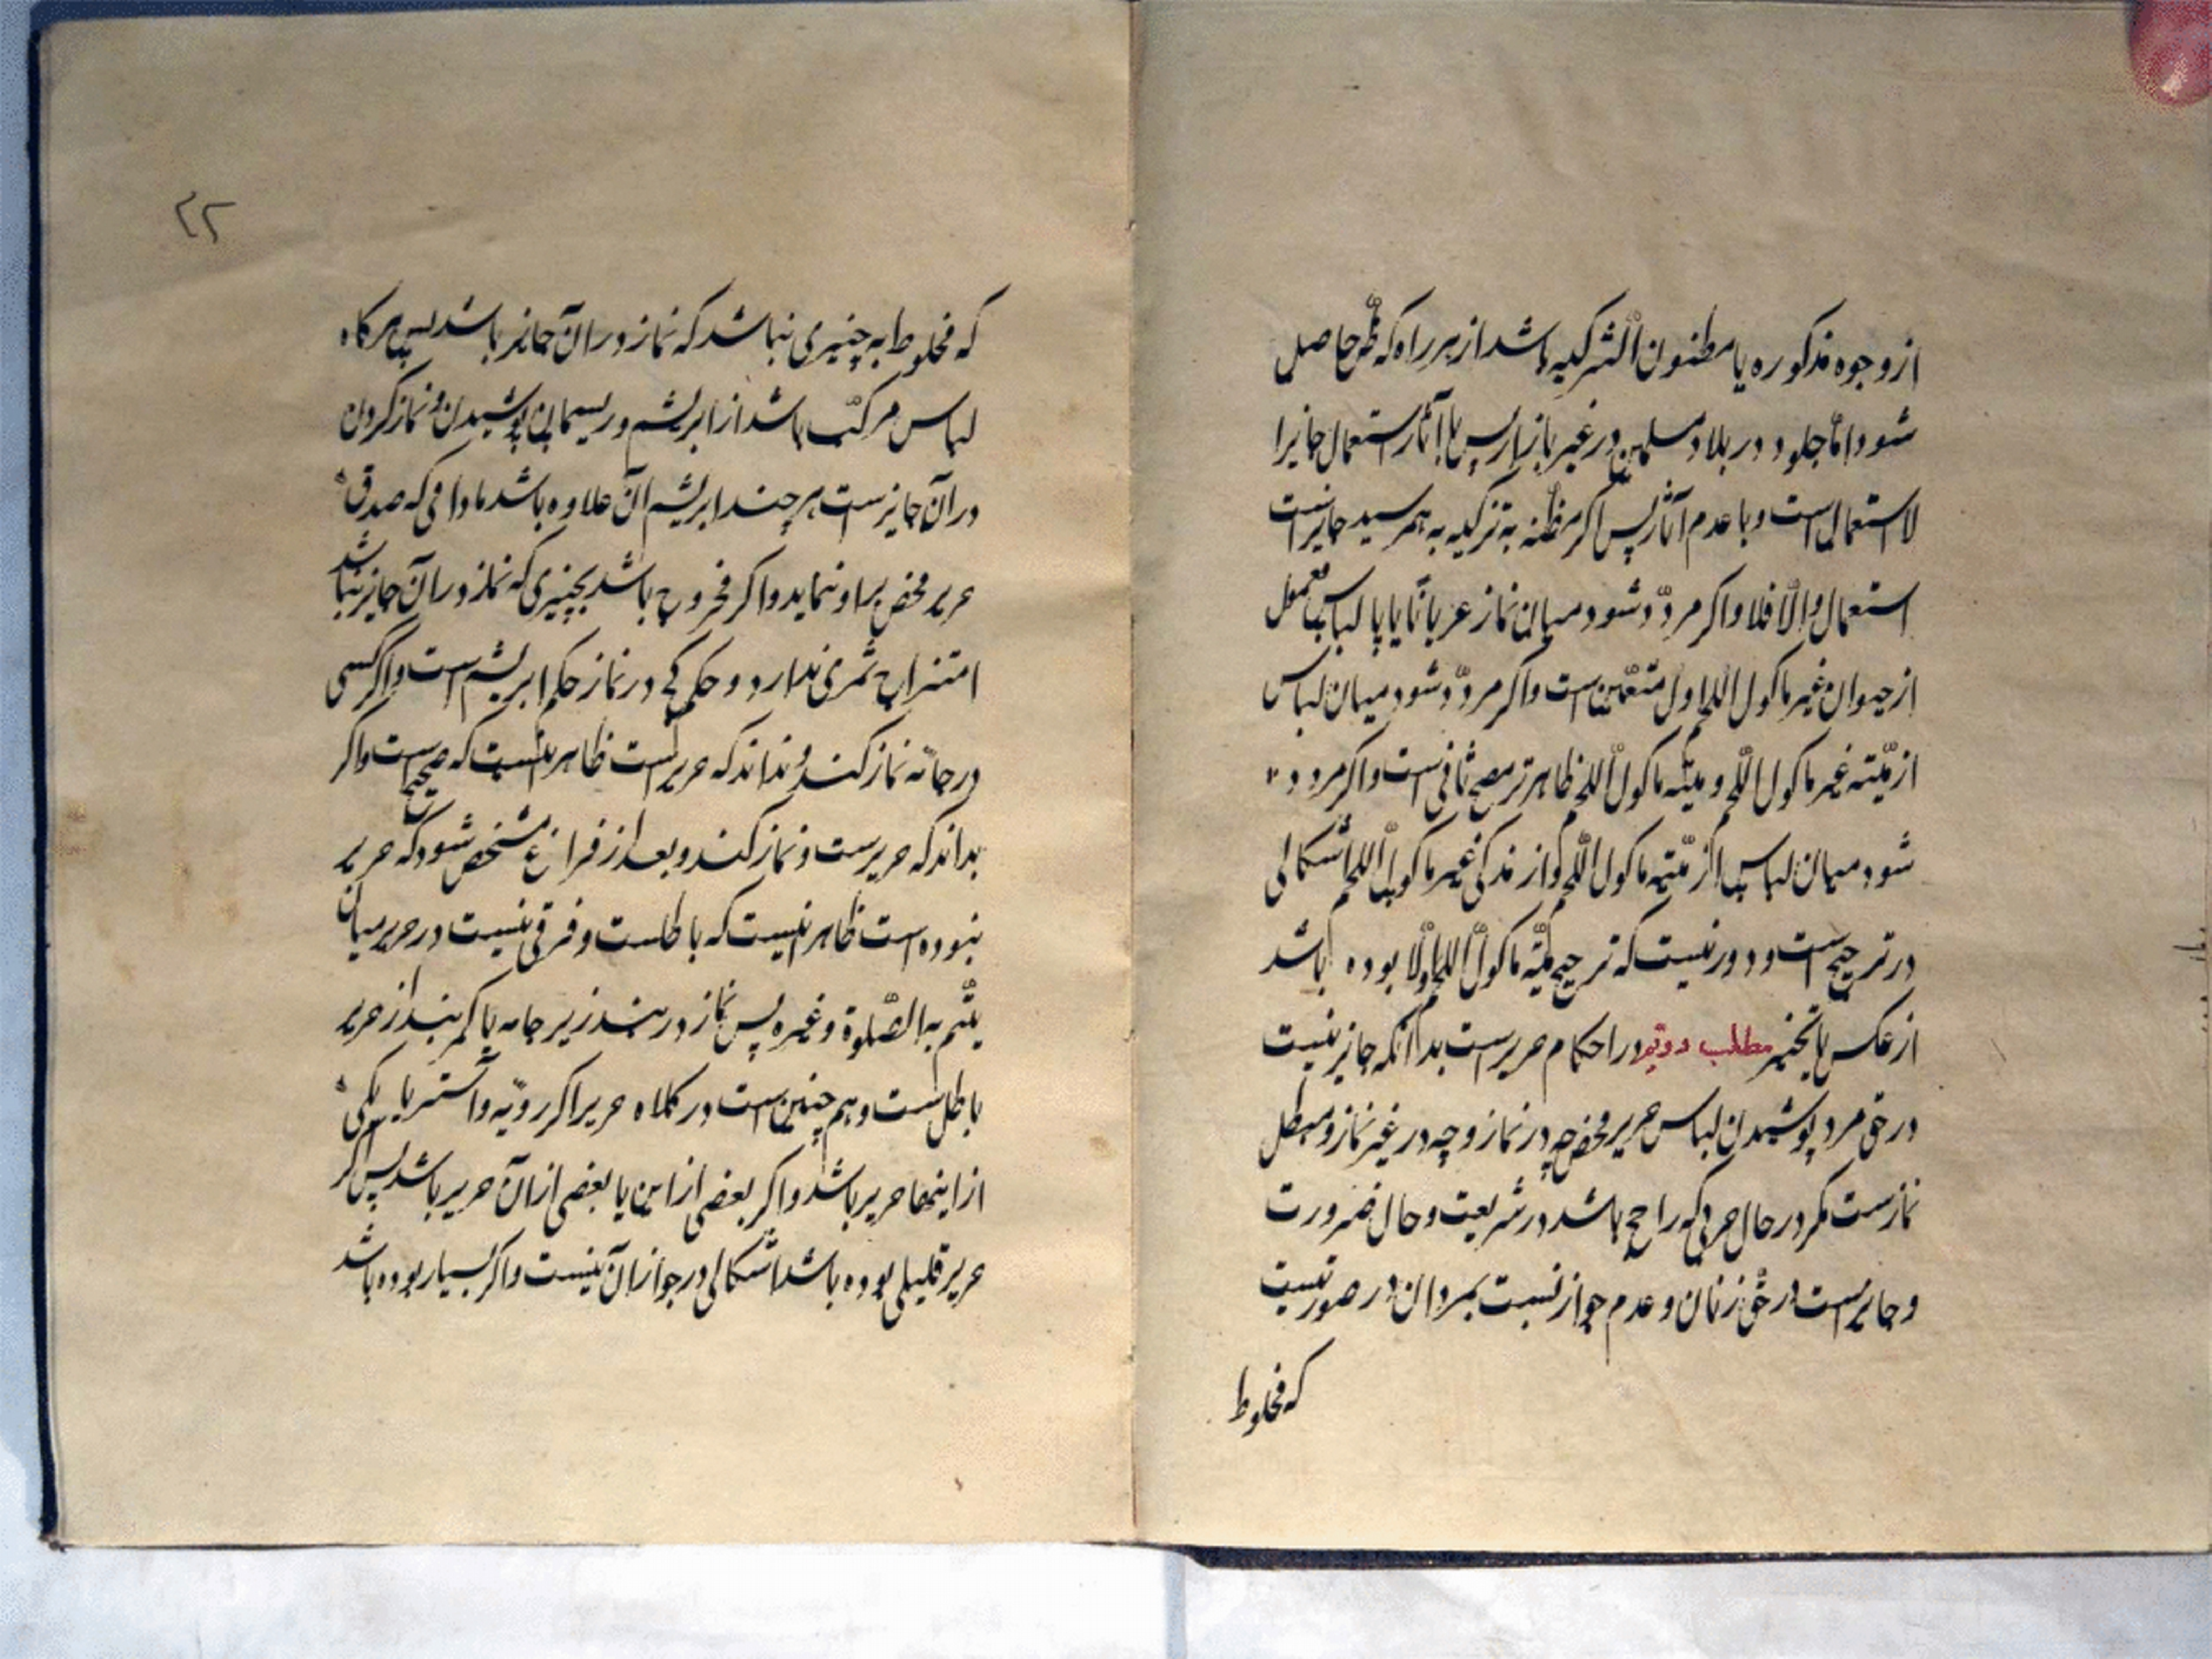 از وجوه مذکوره یا مظنون التزکیه باشد از هر راه که ظنّ حاصل
شود امّا جلود در بلاد مسلمین در غیر بازار پس با آثار استعمال جایزا
لاستعمال است و با عدم آثار پس اکر مظنه به تزکیه به هم رسید جایز است
استعمال والّا فلا و اکر مردّد شود میان نماز عریاناً یا با لباس معمول
از حیوان غیر ماکول اللحم اول متعیّن است و اکر مردّد شود میان لباس
از میّته غیر ماکول اللّحم و میّته ماکول اللّحم ظاهر ترجیح ثانی است و اکر مردد
شود میان لباس از میّته ماکول اللّحم و از مذکی غیر ماکول اللّحم اشکالی
در ترجیح است و دور نیست که ترجیح میّته ماکول اللّحم اولا بوده باشد
از عکس یا تخییر مطلب دویّم در احکام حریر است بدانکه جایز نیست
در حق مرد پوشیدن لباس حریر محض چه در نماز و چه در غیر نماز و مبطل
نماز است مکر در حال حربی که راجح باشد در شریعت و حال ضرورت
و جایز است در حقّ زنان و عدم جواز نسبت بمردان در صورتیست
که مخلوط
۲۲
که مخلوط به چیزی نباشد که نماز در آن جایز باشد پس هرکاه
لباس مرکّب باشد از ابریشم و ریسمان پوشیدن و نماز کردن
در آن جایز است هر چند ابریشم آن علاوه باشد مادامی که صدق
حریر محض بر او ننماید و اکر مخروج باشد بچیزی که نماز در آن جایز نباشد
امتزاج ثمری ندارد و حکم کج در نماز حکم ابریشم است و اکر کسی
در جامه نماز کند و نداند که حریر است ظاهر اینست که صحیح است و اکر
بداند که حریر است و نماز کند و بعد از فراغ مشخص شود که حریر
نبوده است ظاهر اینست که باطلست و فرقی نیست در حریر میان
یتّم به الصّلوة و غیره پس نماز در بند زیر جامه یا کمر بند از حریر
باطل است و هم چنین است در کلاه حریر اکر رویّه و آستر یا یکی
از اینها حریر باشد و اکر بعضی از این یا بعضی از آن حریر باشد پس اکر
حریر قلیلی بوده باشد اشکالی در جواز آن نیست و اکر بسیار بوده باشد